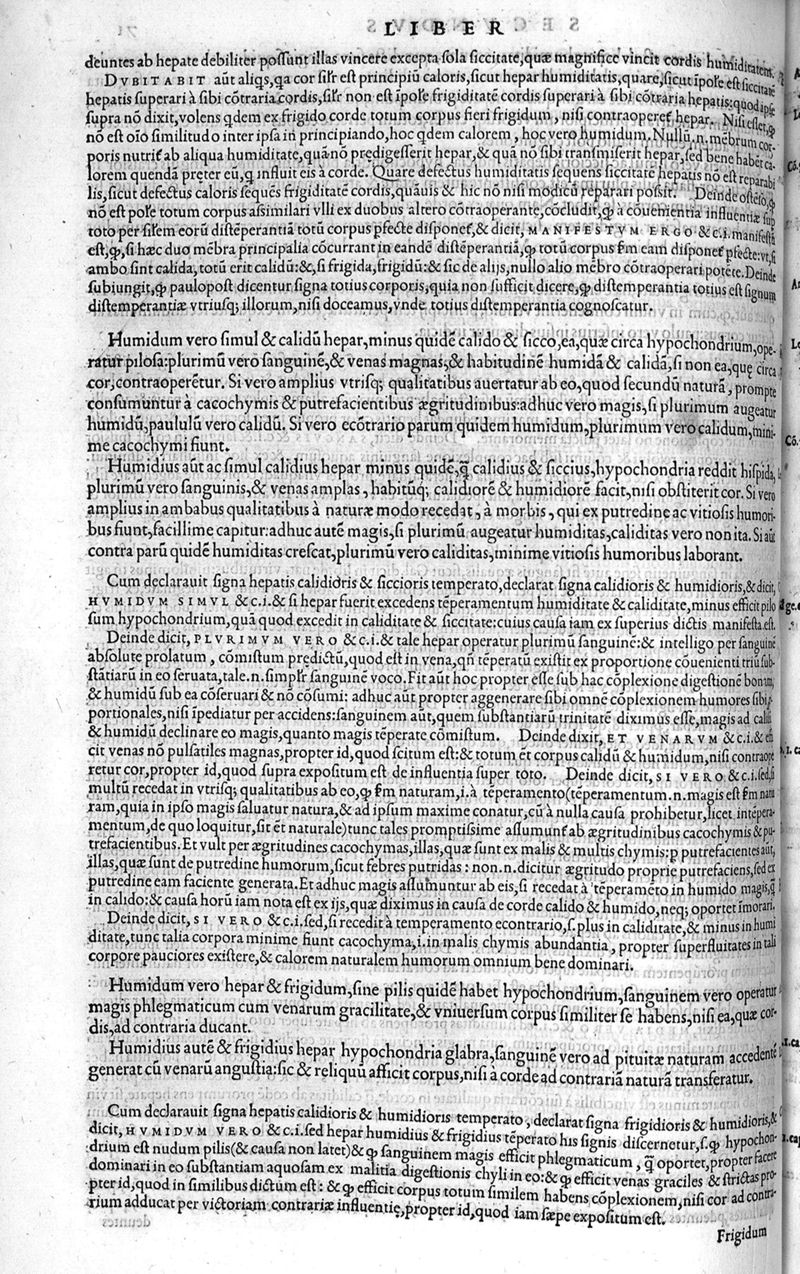 LIBER
deuntes ab hepate debiliter possunt illas vincere excepta sola siccitate, quæ magnifice vincit cordis humiditatem.
DVBITABIT aūt aliqs, qa cor sil'r est principiū caloris, sicut hepar humiditatis, quare, sicut īpole est siccitatē
hepatis superari à sibi cōtraria cordis, sil'r non est īpole frigiditatē cordis superari à sibi cōtraria hepatis: quod ipse
supra nō dixit, volens qdem ex frigido corde totum corpus fieri frigidum, nisi contraoperet' hepar. Nisi esset, ꝙ
nō est oīo similitudo inter ipsa in principiando, hoc qdem calorem, hoc vero humidum. Nullū .n. mēbrum cor-
poris nutrit' ab aliqua humiditate, quā nō prędigesserit hepar, & quā nō sibi transmiserit hepar, sed bene habet ca-
lorem quendā pręter eū, ꝗ influit eis à corde. Quare defectus humiditatis sequens siccitatē hepatis nō est reparabi
lis, sicut defectus caloris sequēs frigiditatē cordis, quāuis & hic nō nisi modicū reparari possit. Deinde ostēso, ꝙ
nō est pole totum corpus assimilari vlli ex duobus altero cōtraoperante, cōcludit, ꝙ à cōuenientia influentiæ sup
toto per silem eorū distēperantiā totū corpus pfecte disponet', & dicit, MANIFESTVM ERGO &c. i. manifestū
est, ꝙ, si hæc duo mēbra principalia cōcurrant in eandē distēperantiā, ꝙ totū corpus fm eam disponet' pfecte: vt, si
ambo sint calida, totū erit calidū: &, si frigida, frigidū: & sic de alijs, nullo alio mēbro cōtraoperari potēte. Deinde
subiungit, ꝙ paulopost dicentur signa totius corporis, quia non sufficit dicere, ꝙ distemperantia totius est signum
distemperantiæ vtriusq; illorum, nisi doceamus, vnde totius distemperantia cognoscatur.
Humidum vero simul & calidū hepar, minus quidē calido & sicco, ea, quæ circa hypochondrium, ope-
ratur pilosa: plurimū vero sanguinē, & venas magnas, & habitudinē humidā & calidā, si non ea, quę circa
cor, contraoperētur. Si vero amplius vtrisq; qualitatibus auertatur ab eo, quod secundū naturā, prompte
consumuntur à cacochymis & putrefacientibus ægritudinibus: adhuc vero magis, si plurimum augeatur
humidū, paululū vero calidū. Si vero ecōtrario parum quidem humidum, plurimum vero calidum, mini-
me cacochymi fiunt.
Humidius aūt ac simul calidius hepar minus quidē, ꝗ̄ calidius & siccius, hypochondria reddit hispida,
plurimū vero sanguinis, & venas amplas, habitūq; calidiorē & humidiorē facit, nisi obstiterit cor. Si vero
amplius in ambabus qualitatibus à naturæ modo recedat, à morbis, qui ex putredine ac vitiosis humori-
bus fiunt, facillime capitur: adhuc autē magis, si plurimū augeatur humiditas, caliditas vero non ita. Si aūt
contra parū quidē humiditas crescat, plurimū vero caliditas, minime vitiosis humoribus laborant.
Cum declarauit signa hepatis calidioris & siccioris temperato, declarat signa calidioris & humidioris, & dicit,
HVMIDVM SIMVL &c. i. & si hepar fuerit excedens tēperamentum humiditate & caliditate, minus efficit pilo
sum hypochondrium, quā quod excedit in caliditate & siccitate: cuius causa iam ex superius dictis manifesta est.
Deinde dicit, PLVRIMVM VERO &c. i. & tale hepar operatur plurimū sanguinē: & intelligo per sanguinē
absolute prolatum, cōmistum prędictū, quod est in vena, qn̄ tēperatū existit ex proportione cōuenienti triū sub-
stātiarū in eo seruata, tale .n. simpl'r sanguinē voco. Fit aūt hoc propter esse sub hac cōplexione digestionē bonam,
& humidū sub ea cōseruari & nō cōsumi: adhuc aūt propter aggenerare sibi omnē cōplexionem humores sibi p-
portionales, nisi īpediatur per accidens: sanguinem aūt, quem substantiarū trinitatē diximus esse, magis ad calidū
& humidū declinare eo magis, quanto magis tēperate cōmistum. Deinde dixit, ET VENARVM &c. i. & effi
cit venas nō pulsatiles magnas, propter id, quod scitum est: & totum ēt corpus calidū & humidum, nisi contraope
retur cor, propter id, quod supra expositum est de influentia super toto. Deinde dicit, SI VERO &c. i. sed, si
multū recedat in vtrisq; qualitatibus ab eo, ꝙ fm naturam, i. à tēperamento (tēperamentum .n. magis est fm natu
ram, quia in ipso magis saluatur natura, & ad ipsum maxime conatur, cū à nulla causa prohibetur, licet intēpera-
mentum, de quo loquitur, sit ēt naturale) tunc tales promptissime assumunt' ab ægritudinibus cacochymis & pu-
trefacientibus. Et vult per ægritudines cacochymas, illas, quæ sunt ex malis & multis chymis: p putrefacientes aūt,
illas, quæ sunt de putredine humorum, sicut febres putridas: non .n. dicitur ægritudo proprie putrefaciens, sed ex
putredine eam faciente generata. Et adhuc magis assumuntur ab eis, si recedat à tēperamēto in humido magis, ꝗ̄
in calido: & causa horū iam nota est ex ijs, quæ diximus in causa de corde calido & humido, neq; oportet īmorari.
Deinde dicit, SI VERO &c. i. sed, si recedit à temperamento econtrario, s. plus in caliditate, & minus in humi
ditate, tunc talia corpora minime fiunt cacochyma, i. in malis chymis abundantia, propter superfluitates in tali
corpore pauciores existere, & calorem naturalem humorum omnium bene dominari.
Humidum vero hepar & frigidum, sine pilis quidē habet hypochondrium, sanguinem vero operatur
magis phlegmaticum cum venarum gracilitate, & vniuersum corpus similiter se habens, nisi ea, quæ cor-
dis, ad contraria ducant.
Humidius autē & frigidius hepar hypochondria glabra, sanguinē vero ad pituitæ naturam accedentē
generat cū venarū angustia: sic & reliquū afficit corpus, nisi à corde ad contrariā naturā transferatur.
Cum declarauit signa hepatis calidioris & humidioris temperato, declarat signa frigidioris & humidioris, &
dicit, HVMIDVM VERO &c. i. sed hepar humidius & frigidius tēperato his signis discernetur, s. ꝙ hypochon-
drium est nudum pilis (& causa non latet) & ꝙ sanguinem magis efficit phlegmaticum, ꝗ̄ oportet, propter facere
dominari in eo substantiam aquosam ex malitia digestionis chyli in eo: & ꝙ efficit venas graciles & strictas pro-
pter id, quod in similibus dictum est: & ꝙ efficit corpus totum similem habens cōplexionem, nisi cor ad contra-
rium adducat per victoriam contrariæ influentię, propter id, quod iam sæpe expositum est.
Frigidum